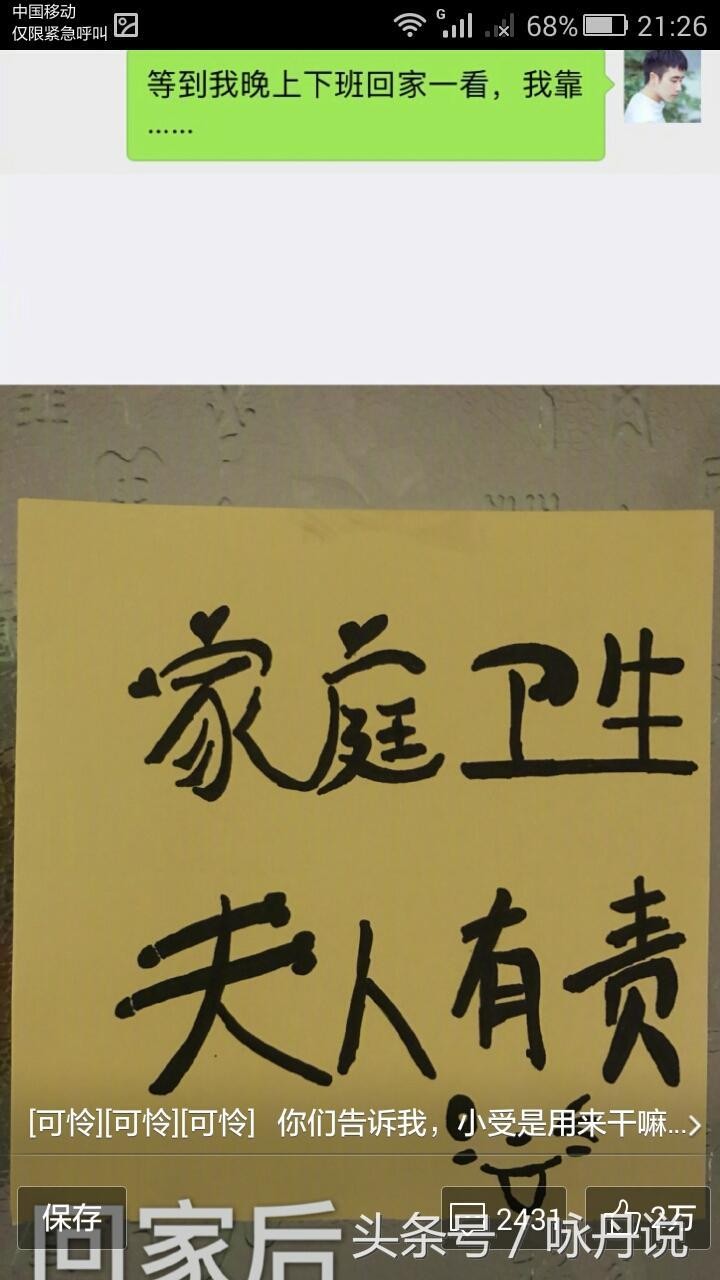 中国移动
仅限紧急呼叫
G
68%
21:26
等到我晚上下班回家一看，我靠
......
家庭卫生
夫人有责
[可怜][可怜][可怜] 你们告诉我，小受是用来干嘛...
保存
2431
2万
回家后
头条号 / 咏丹说